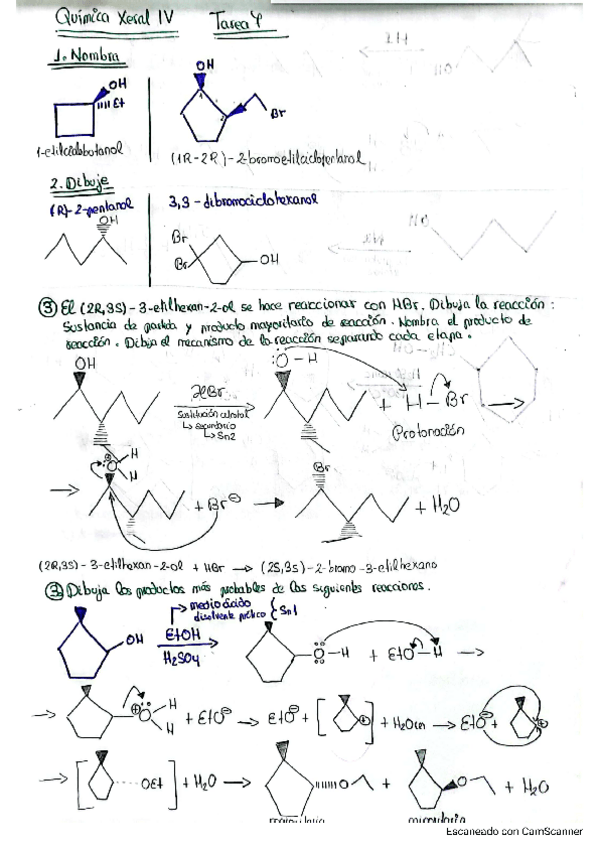 Química Xeral IV   Tarea 4
1. Nombra
OH
Et
OH
Br
1-etilciclobutanol
(1R-2R)-2-bromoetilciclopentanol
2. Dibuje
(R)-2-pentanol
3,3-dibromociclohexanol
OH
Br
Br
OH
③ El (2R,3S)-3-etilhexan-2-ol se hace reaccionar con HBr. Dibuja la reacción:
Sustancia de partida y producto mayoritario de reacción. Nombra el producto de
reacción. Dibuja el mecanismo de la reacción separando cada etapa.
OH
HBr
Sustitución alcohol
↳ secundario
↳ Sn2
O-H
+ H-Br
Protonación
⊕O H
H
+ Br⊖
Br
+ H2O
(2R,3S)-3-etilhexan-2-ol + HBr → (2S,3S)-2-bromo-3-etilhexano
③ Dibuja los productos más probables de las siguientes reacciones.
medio ácido
disolvente prótico { Sn1
OH
EtOH
H2SO4
O-H + EtO-H →
→ ⊕O H
H
+ EtO⊖ → EtO⊖ + [ ⊕ ] + H2O → EtO⊖ + ⊕
→ [ ..... OEt ] + H2O →
O
+
O
+ H2O
Escaneado con CamScanner